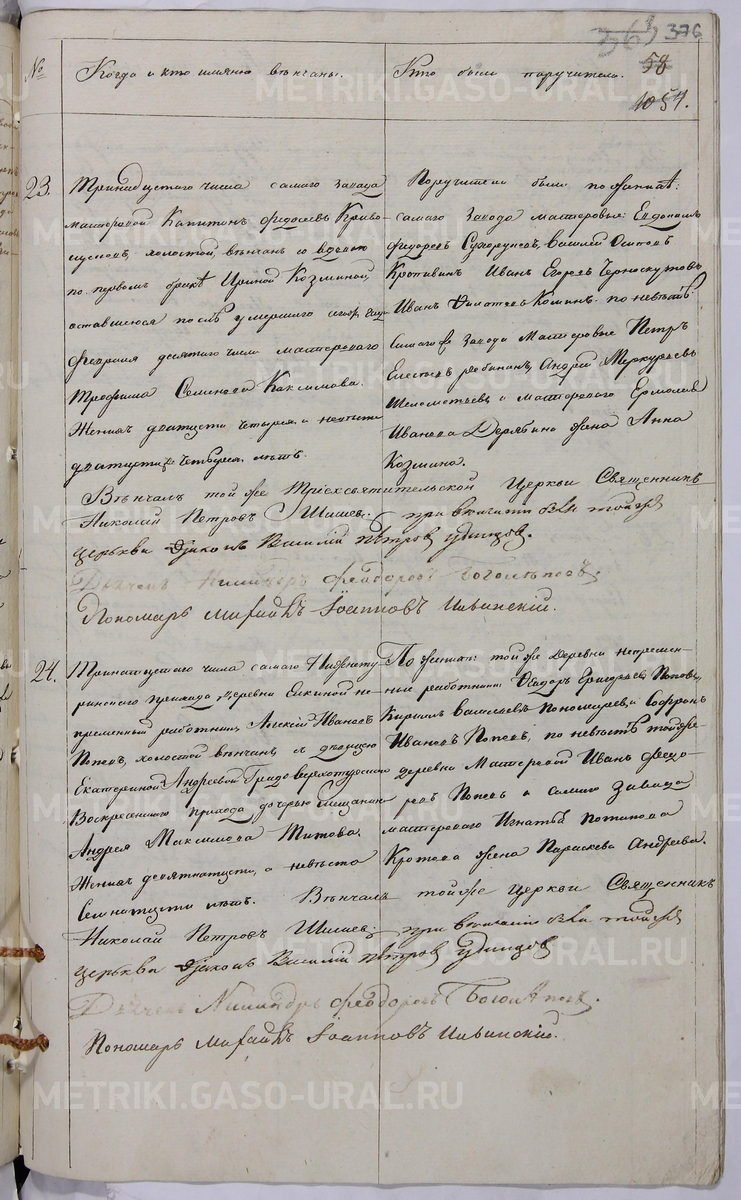 363 376
№
Когда и кто имянно вѣнчаны.
Кто были поручители.
58
1054.
23.
Тринадцетаго числа самаго завода
мастеровой Капитонъ Федосѣевъ Криво-
, холостой, вѣнчанъ со вдовою
по первомъ бракѣ Ириной Козминой,
оставшеюся послѣ умершаго сего года
февраля десятаго числа мастероваго
Трофима Семенова Максимова.
Жениху дватцети четыре, а невѣсте
дватцети четыре лѣтъ.
Поручители были по женихѣ:
самаго Завода мастеровые Евдокимъ
Федоровъ , Василей Осиповъ
Кропивинъ Иванъ Егоровъ Черноскутовъ
Иванъ . по невѣстѣ:
самаго завода Мастеровые Петръ
Елесѣевъ , Андрей Меркурьевъ
и мастероваго Ермолая
Иванова Дерябина жена Анна
Козмина.
Вѣнчалъ той же Трехсвятительской Церкви Священникъ
Николай Петровъ Шишев. при вѣнчании были тойже
церькви Дьяконъ Василій Петровъ Удинцов.
Дьячекъ Никандръ Феодоровъ Боголѣповъ.
Пономарь Михаилъ Іоанновъ Ильинскій.
24.
Тринатцетаго числа самаго Нижнету-
ринскаго прихода деревни Елкиной не-
пременный работникъ Алексѣй Ивановъ
Поповъ, холостой вѣнчанъ с девицею
Екатериной Андреевой Градо Верхотурскаго
Воскресенскаго прихода дочерью Мещанина
Андрея Максимова Титова.
Жениху девятнатцети, а невѣста
семнатцети лѣтъ. Вѣнчалъ той же Церкви Священникъ
По женихѣ: той же Деревни непремен-
ные работники Федоръ Григорьевъ Поповъ,
Кирилъ Васильевъ Пономаревъ, и Софронъ
Ивановъ Поповъ, по невѣстѣ той же
деревни Мастеровой Иванъ Федо-
ровъ Поповъ и самаго Завода
мастероваго Игнатья Потапова
Кротова жена Параскева Андреева.
Николай Петровъ Шишев. при вѣнчании были той же
церькви Дьяконъ Василій Петровъ Удинцов
Дьячекъ Никандръ Феодоровъ Боголѣповъ.
Пономарь Михаилъ Іоанновъ Ильинскій.
METRIKI.GASO-URAL.RU